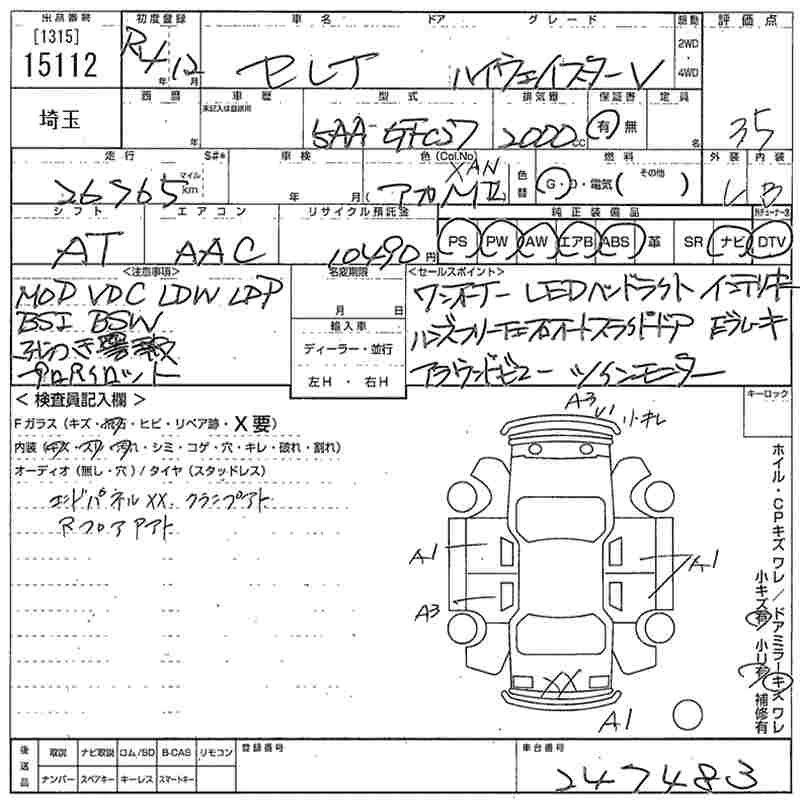 出品番号 初度登録 車名 ドア グレード 駆動 評価点
[1315] 15112 R4年12月 セレナ ハイウェイスターV 2WD・4WD 3.5
埼玉 西暦 年 車歴 未記入は自家用 型式 5AA-GFC27 排気量 2000cc 保証書 有 無 定員 名
走行 26765 マイル km S#* 車検 年 月 色(Col.No) アカMII XAN 色替 燃料 G・D・電気( その他 ) 外装 内装 B
シフト AT エアコン AAC リサイクル預託金 10490円 純正装備品 PS PW AW エアB ABS 革 SR ナビ DTV
<注意事項> 名変期限 月 日 <セールスポイント>
MOD VDC LDW LDP
BSI BSW
プロパイロット
輸入車
ディーラー・並行
左H・右H
ワンオーナー LEDヘッドライト インテリキー
ハンズフリー左右オートスライドドア Eブレーキ
アラウンドビュー ツインモニター
<検査員記入欄> キーロック
Fガラス(キズ・飛石・ヒビ・リペア跡・X要)
内装(キズ・スリ・汚れ・シミ・コゲ・穴・キレ・破れ・割れ)
オーディオ(無し・穴)/タイヤ(スタッドレス)
エンドパネルXX、クランプアト
Rフロアアト
A3 小キレ
A1 A1
A3
XX
A1
ホイル・CPキズ ワレ/ドアミラーキズ ワレ
小キズ有 小凹有 補修有
後送品 取説 ナビ取説 ロム/SD B-CAS リモコン 登録番号 車台番号
ナンバー スペアキー キーレス スマートキー 247483